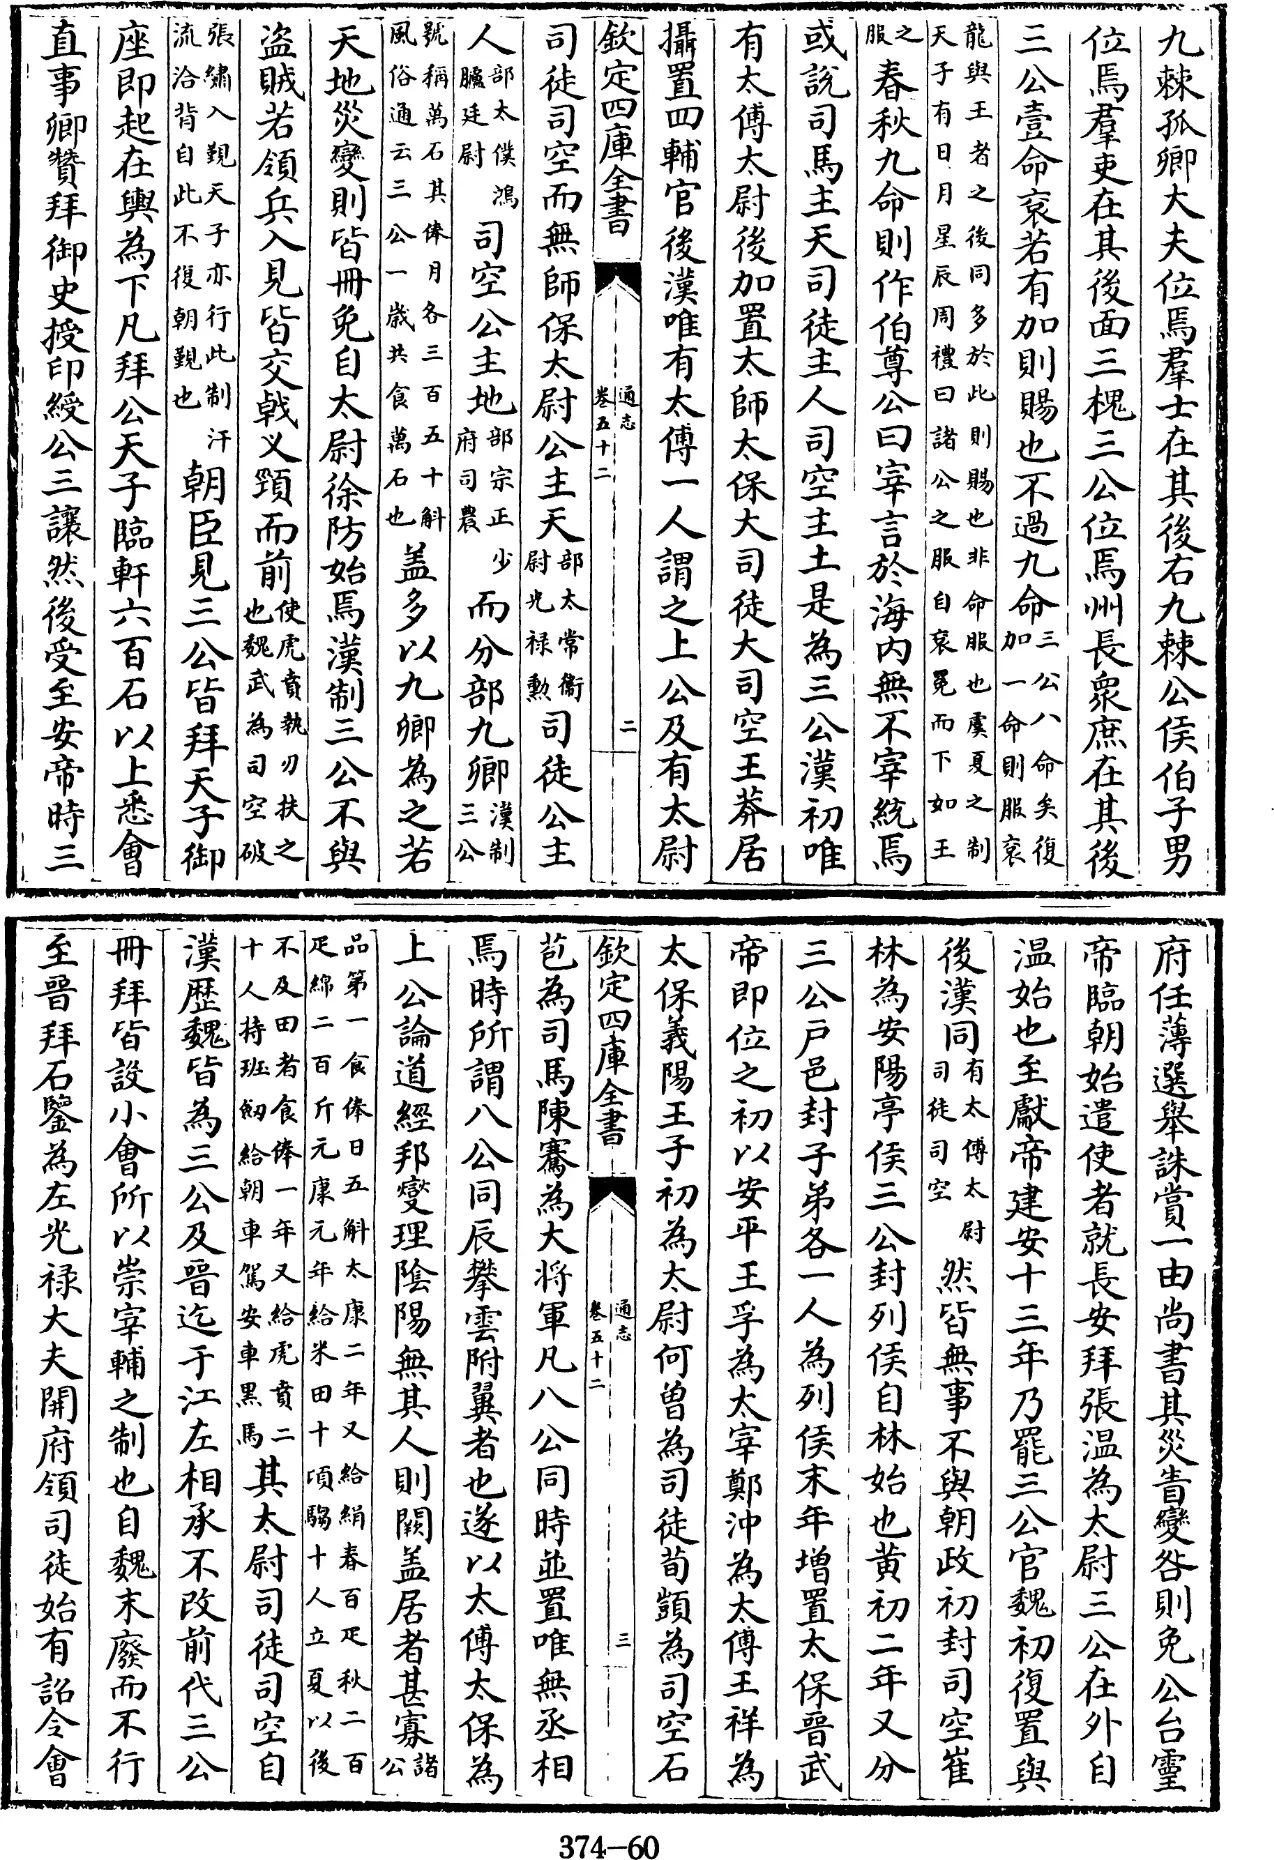 九棘孤卿大夫位焉羣士在其後右九棘公侯伯子男
位焉羣吏在其後面三槐三公位焉州長衆庶在其後
三公壹命衮若有加則賜也不過九命三公八命矣復加一命則服衮
龍與王者之後同多於此則賜也非命服也虞夏之制天子有日月星辰周禮曰諸公之服自衮冕而下如王
之服春秋九命則作伯尊公曰宰言於海内無不宰統焉
或說司馬主天司徒主人司空主土是為三公漢初唯
有太傅太尉後加置太師太保大司徒大司空王莽居
攝置四輔官後漢唯有太傅一人謂之上公及有太尉
欽定四庫全書 通志 卷五十二 二
司徒司空而無師保太尉公主天部太常衞尉光禄勲司徒公主
人部太僕鴻臚廷尉司空公主地部宗正少府司農而分部九卿漢制三公
號稱萬石其俸月各三百五十斛風俗通云三公一歲共食萬石也盖多以九卿為之若
天地災變則皆冊免自太尉徐防始焉漢制三公不與
盗賊若領兵入見皆交戟叉頸而前使虎賁執刃扶之也魏武為司空破
張繡入覲天子亦行此制汗流洽背自此不復朝覲也朝臣見三公皆拜天子御
座即起在輿為下凡拜公天子臨軒六百石以上悉會
直事卿贊拜御史授印綬公三讓然後受至安帝時三
府任薄選舉誅賞一由尚書其災眚變咎則免公台靈
帝臨朝始遣使者就長安拜張温為太尉三公在外自
温始也至獻帝建安十三年乃罷三公官魏初復置與
後漢同有太傅太尉司徒司空然皆無事不與朝政初封司空崔
林為安陽亭侯三公封列侯自林始也黄初二年又分
三公户邑封子弟各一人為列侯末年增置太保晉武
帝即位之初以安平王孚為太宰鄭沖為太傅王祥為
太保義陽王子初為太尉何曾為司徒荀顗為司空石
欽定四庫全書 通志 卷五十二 三
苞為司馬陳騫為大將軍凡八公同時並置唯無丞相
焉時所謂八公同辰攀雲附翼者也遂以太傅太保為
上公論道經邦燮理陰陽無其人則闕盖居者甚寡諸公
品第一食俸日五斛太康二年又給絹春百疋秋二百疋綿二百斤元康元年給米田十頃騶十人立夏以後
不及田者食俸一年又給虎賁二十人持班劒給朝車駕安車黑馬其太尉司徒司空自
漢歴魏皆為三公及晉迄于江左相承不改前代三公
冊拜皆設小會所以崇宰輔之制也自魏末廢而不行
至晉拜石鑒為左光禄大夫開府領司徒始有詔令會
374-60